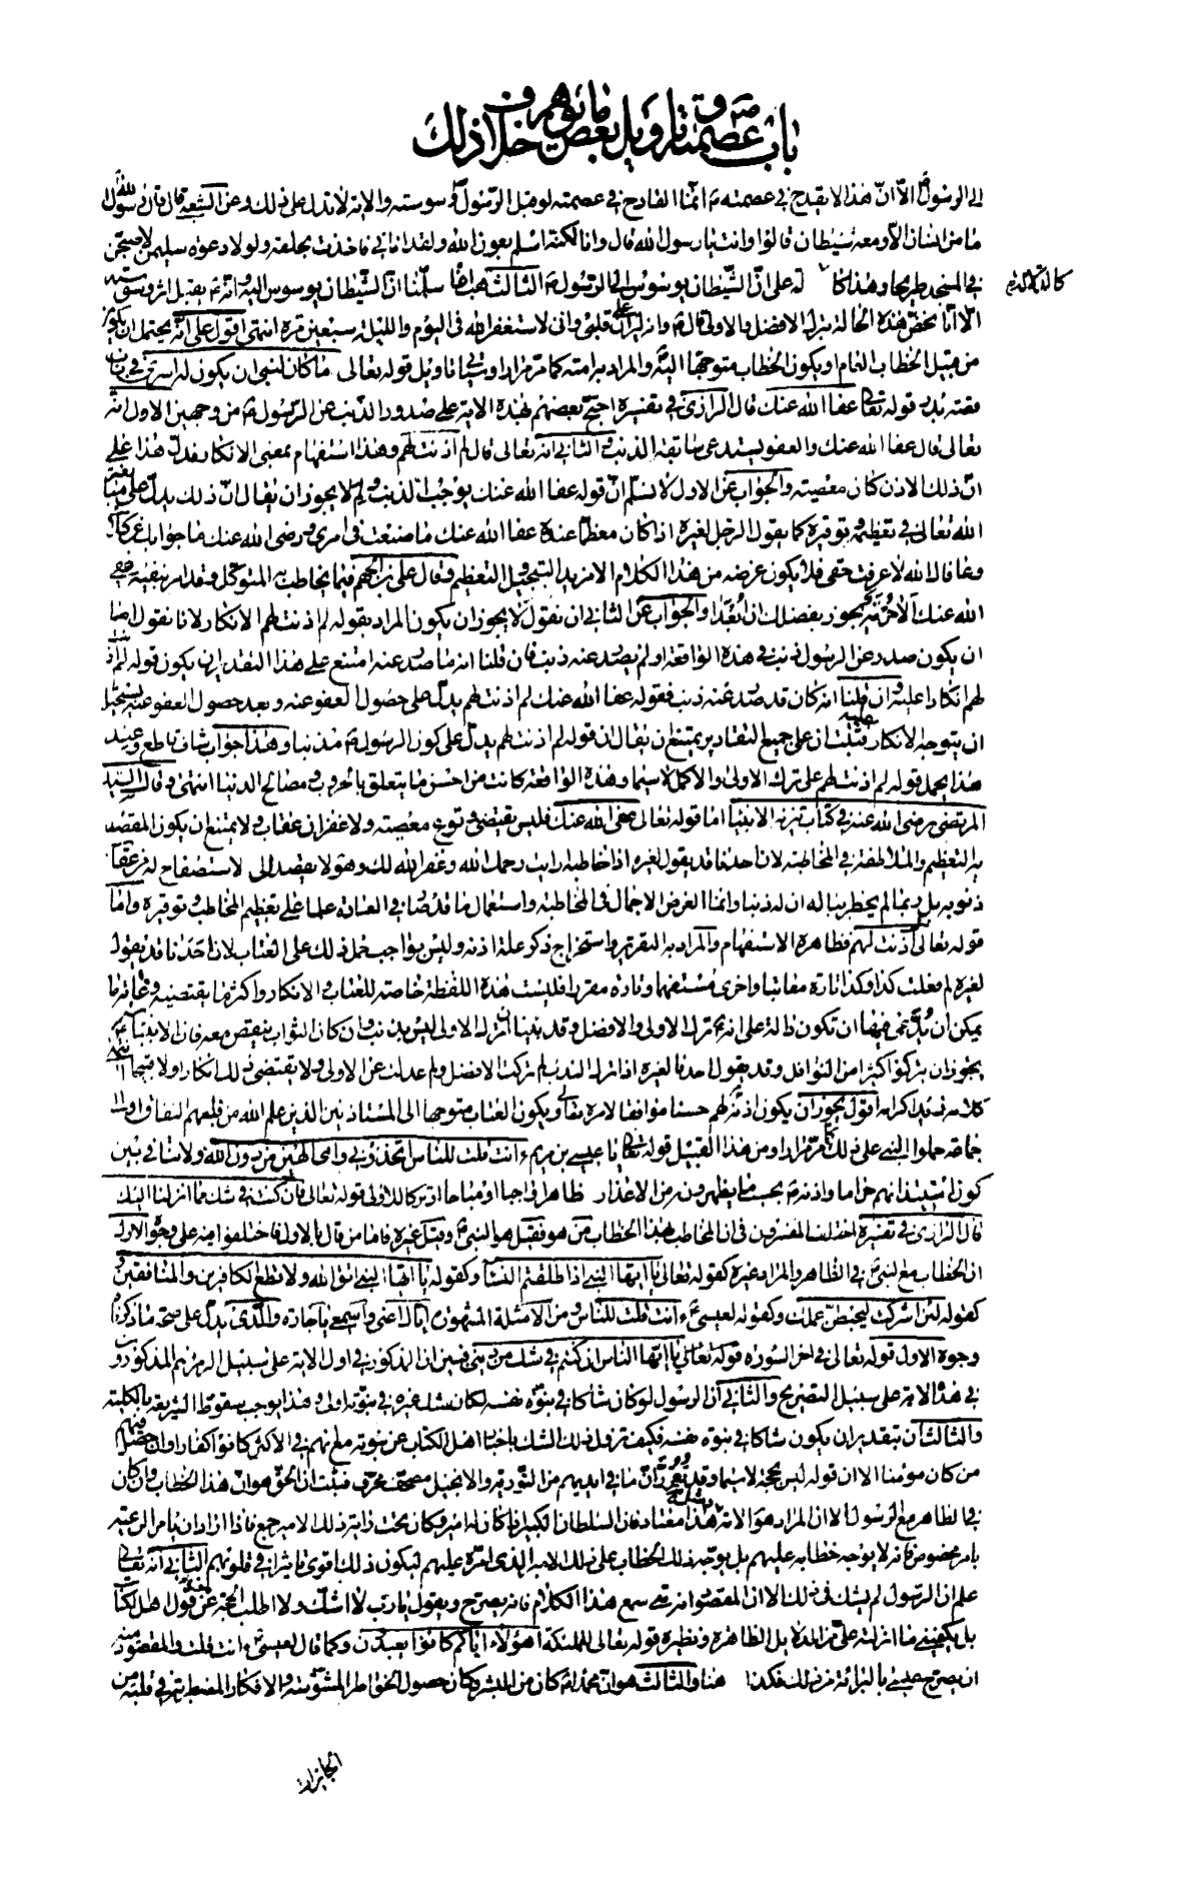 باب عصمته وتأويل بعض ما يوهم خلاف ذلك
إلى الرسول إلا أن هذا لا يقدح في عصمته ع إنما القادح في عصمته لو قبل الرسول وسوسته والآية لا تدل على ذلك وعن الشعبي قال قال رسول الله
ما من إنسان إلا ومعه شيطان قالوا وأنت يا رسول الله قال وأنا لكنه أسلم بعون الله ولقد أتاني فأخذت بحلقه ولولا دعوة سليمن لأصبح
في المسجد طريحا وهذا كا له على أن الشيطان يوسوس إلى الرسول ع الثالث هب أنا سلمنا أن الشيطان يوسوس إليه وأنه ع يقبل أثر وسوسته
إلا أنا نخص هذه الحالة بترك الأفضل والأولى قال ع وإنه ليران على قلبي وإني لاستغفر الله في اليوم والليلة سبعين مرة انتهى أقول على أنه يحتمل أن يكون
من قبيل الخطاب العام أو يكون الخطاب متوجها إليه والمراد به أمته كما مر مرارا وسيأتي تأويل قوله تعالى ما كان لنبي أن يكون له أسرى في باب
قصة بدر قوله تعالى عفا الله عنك قال الرازي في تفسيره احتج بعضهم بهذه الآية على صدور الذنب عن الرسول ع من وجهين الأول أنه
تعالى قال عفا الله عنك والعفو يستدعي سابقة الذنب والثاني أنه تعالى قال لم أذنت لهم وهذا استفهام بمعنى الإنكار فدل هذا على
أن ذلك الإذن كان معصية والجواب عن الأول لا نسلم أن قوله عفا الله عنك يوجب الذنب ولم لا يجوز أن يقال إن ذلك يدل على مبالغة
الله تعالى في تعظيمه وتوقيره كما يقول الرجل لغيره إذا كان معظما عنده عفا الله عنك ما صنعت في أمري ورضي الله عنك ما جوابك عن كلامي
وعافاك الله لا عرفت حقي فلا يكون غرضه من هذا الكلام إلا مزيد التبجيل والتعظيم وقال علي بن الجهم فيما يخاطب به المتوكل وقد أمر بنفيه عفى
الله عنك ألا حرمة تجود بفضلك أن أبعدا والجواب عن الثاني أن نقول لا يجوز أن يكون المراد بقوله لم أذنت لهم الإنكار لأنا نقول إما
أن يكون صدر عن الرسول ذنب في هذه الواقعة أو لم يصدر عنه ذنب فإن قلنا إنه ما صدر عنه امتنع على هذا التقدير أن يكون قوله لم أذنت
لهم إنكارا عليه وإن قلنا إنه كان قد صدر عنه ذنب فقوله عفا الله عنك لم أذنت لهم يدل على حصول العفو عنه وبعد حصول العفو عنه يستحيل
أن يتوجه الإنكار عليه فثبت أن على جميع التقادير يمتنع أن يقال إن قوله لم أذنت لهم يدل على كون الرسول ع مذنبا وهذا جواب شاف قاطع وعند
هذا يحمل قوله لم أذنت لهم على ترك الأولى والأكمل لا سيما وهذه الواقعة كانت من أحسن ما يتعلق بالحروب ومصالح الدنيا انتهى وقال السيد
المرتضى رضي الله عنه في كتاب تنزيه الأنبيا أما قوله تعالى عفى الله عنك فليس يقتضي وقوع معصية ولا غفران عقاب ولا يمتنع أن يكون المقصد
به التعظيم والملاطفة في المخاطبة لأن أحدنا قد يقول لغيره إذا خاطبه أرأيت رحمك الله وغفر الله لك وهو لا يقصد إلى الاستصفاح له عن عقاب
ذنوبه بل ربما لم يخطر بباله أن له ذنبا وإنما الغرض الإجمال في المخاطبة واستعمال ما قد صار في العادة علما على تعظيم المخاطب وتوقيره وأما
قوله تعالى لم أذنت لهم فظاهره الاستفهام والمراد به التقرير واستخراج ذكر علة إذنه وليس بواجب حمل ذلك على العتاب لأن أحدنا قد يقول
لغيره لم فعلت كذا وكذا تارة معاتبا وأخرى مستفهما وتارة مقررا فليست هذه اللفظة خاصة للعتاب والإنكار وأكثر ما يقتضيه وغاية ما
يمكن أن يدعى فيها أن تكون دالة على أنه ع ترك الأولى والأفضل وقد بينا أن ترك الأولى ليس بذنب وإن كان الثواب ينقص معه فإن الأنبياء
يجوز أن يتركوا كثيرا من النوافل وقد يقول أحدنا لغيره إذا ترك الندب لم تركت الأفضل ولم عدلت عن الأولى ولا يقتضي ذلك إنكارا ولا قبيحا انتهى
كلامه زيد إكرامه أقول يجوز أن يكون إذنه ع لهم حسنا موافقا لأمره تعالى ويكون العتاب متوجها إلى المستأذنين الذين علم الله من قلبهم النفاق أو إلى
جماعة حملوا النبي على ذلك كما مر مرارا ومن هذا القبيل قوله تعالى يا عيسى بن مريم ء أنت قلت للناس اتخذوني وأمي إلهين من دون الله ولا تنافي بين
كون استيذانهم حراما وإذنه ع بحسب ما يظهرون من الأعذار ظاهرا واجبا أو مباحا أو ترك الأولى قوله تعالى فإن كنت في شك مما أنزلنا إليك
قال الرازي في تفسيره اختلف المفسرون في أن المخاطب بهذا الخطاب من هو فقيل هو النبي ع وقيل غيره فأما من قال بالأول فاختلفوا فيه على وجوه الأول
أن الخطاب مع النبي ع في الظاهر والمراد غيره كقوله تعالى يا أيها النبي إذا طلقتم النسا وكقوله يا أيها النبي اتق الله ولا تطع الكافرين والمنافقين و
كقوله لئن أشركت ليحبطن عملك وكقوله لعيسى ع ء أنت قلت للناس ومن الأمثلة المشهورة إياك أعني واسمعي يا جارة والذي يدل على صحة ما ذكرنا
وجوه الأول قوله تعالى في آخر السورة قوله تعالى يا أيها الناس إن كنتم في شك من ديني فبين أن المذكور في أول الآية على سبيل الرمز هم المذكورون
في هذه الآية على سبيل التصريح والثاني أن الرسول لو كان شاكا في نبوة نفسه لكان شك غيره في نبوته أولى وهذا يوجب سقوط الشريعة بالكلية
والثالث أن بتقدير أن يكون شاكا في نبوة نفسه فكيف تزول ذلك الشك بإخبار أهل الكتاب عن نبوته مع أنهم في الأكثر كانوا كفارا وإن حصل فيهم
من كان مؤمنا إلا أن قوله ليس بحجة لا سيما وقد تقرر أن ما في أيديهم من التورية والإنجيل مصحف محرف فثبت أن الحق هو أن هذا الخطاب وإن كان
في الظاهر مع الرسول إلا أن المراد هو الأمة ومثل هذا معتاد فإن السلطان الكبير إذا كان له أمير وكان تحت راية ذلك الأمير جمع فإذا أراد أن يأمر الرعية
بأمر مخصوص فإنه لا يوجه خطابه عليهم بل يوجه ذلك الخطاب على ذلك الأمير الذي أمره عليهم ليكون ذلك أقوى تأثيرا في قلوبهم الثاني أنه تعالى
علم أن الرسول لم يشك في ذلك إلا أن المقصود أنه متى سمع هذا الكلام فإنه يصرح ويقول يا رب لا أشك ولا أطلب الحجة من قول أهل الكتاب
بل يكفيني ما أنزلته علي من الدلايل الظاهرة ونظيره قوله تعالى للملئكة أهؤلاء إياكم كانوا يعبدون وكما قال لعيسى ع ء أنت قلت والمقصود منه
أن يصرح عيسى بالبرائة من ذلك فكذا هنا والثالث هو أن محمدا ع كان من البشر وكان حصول الخواطر المشوشة والأفكار المضطربة في قلبه من
الجايزات